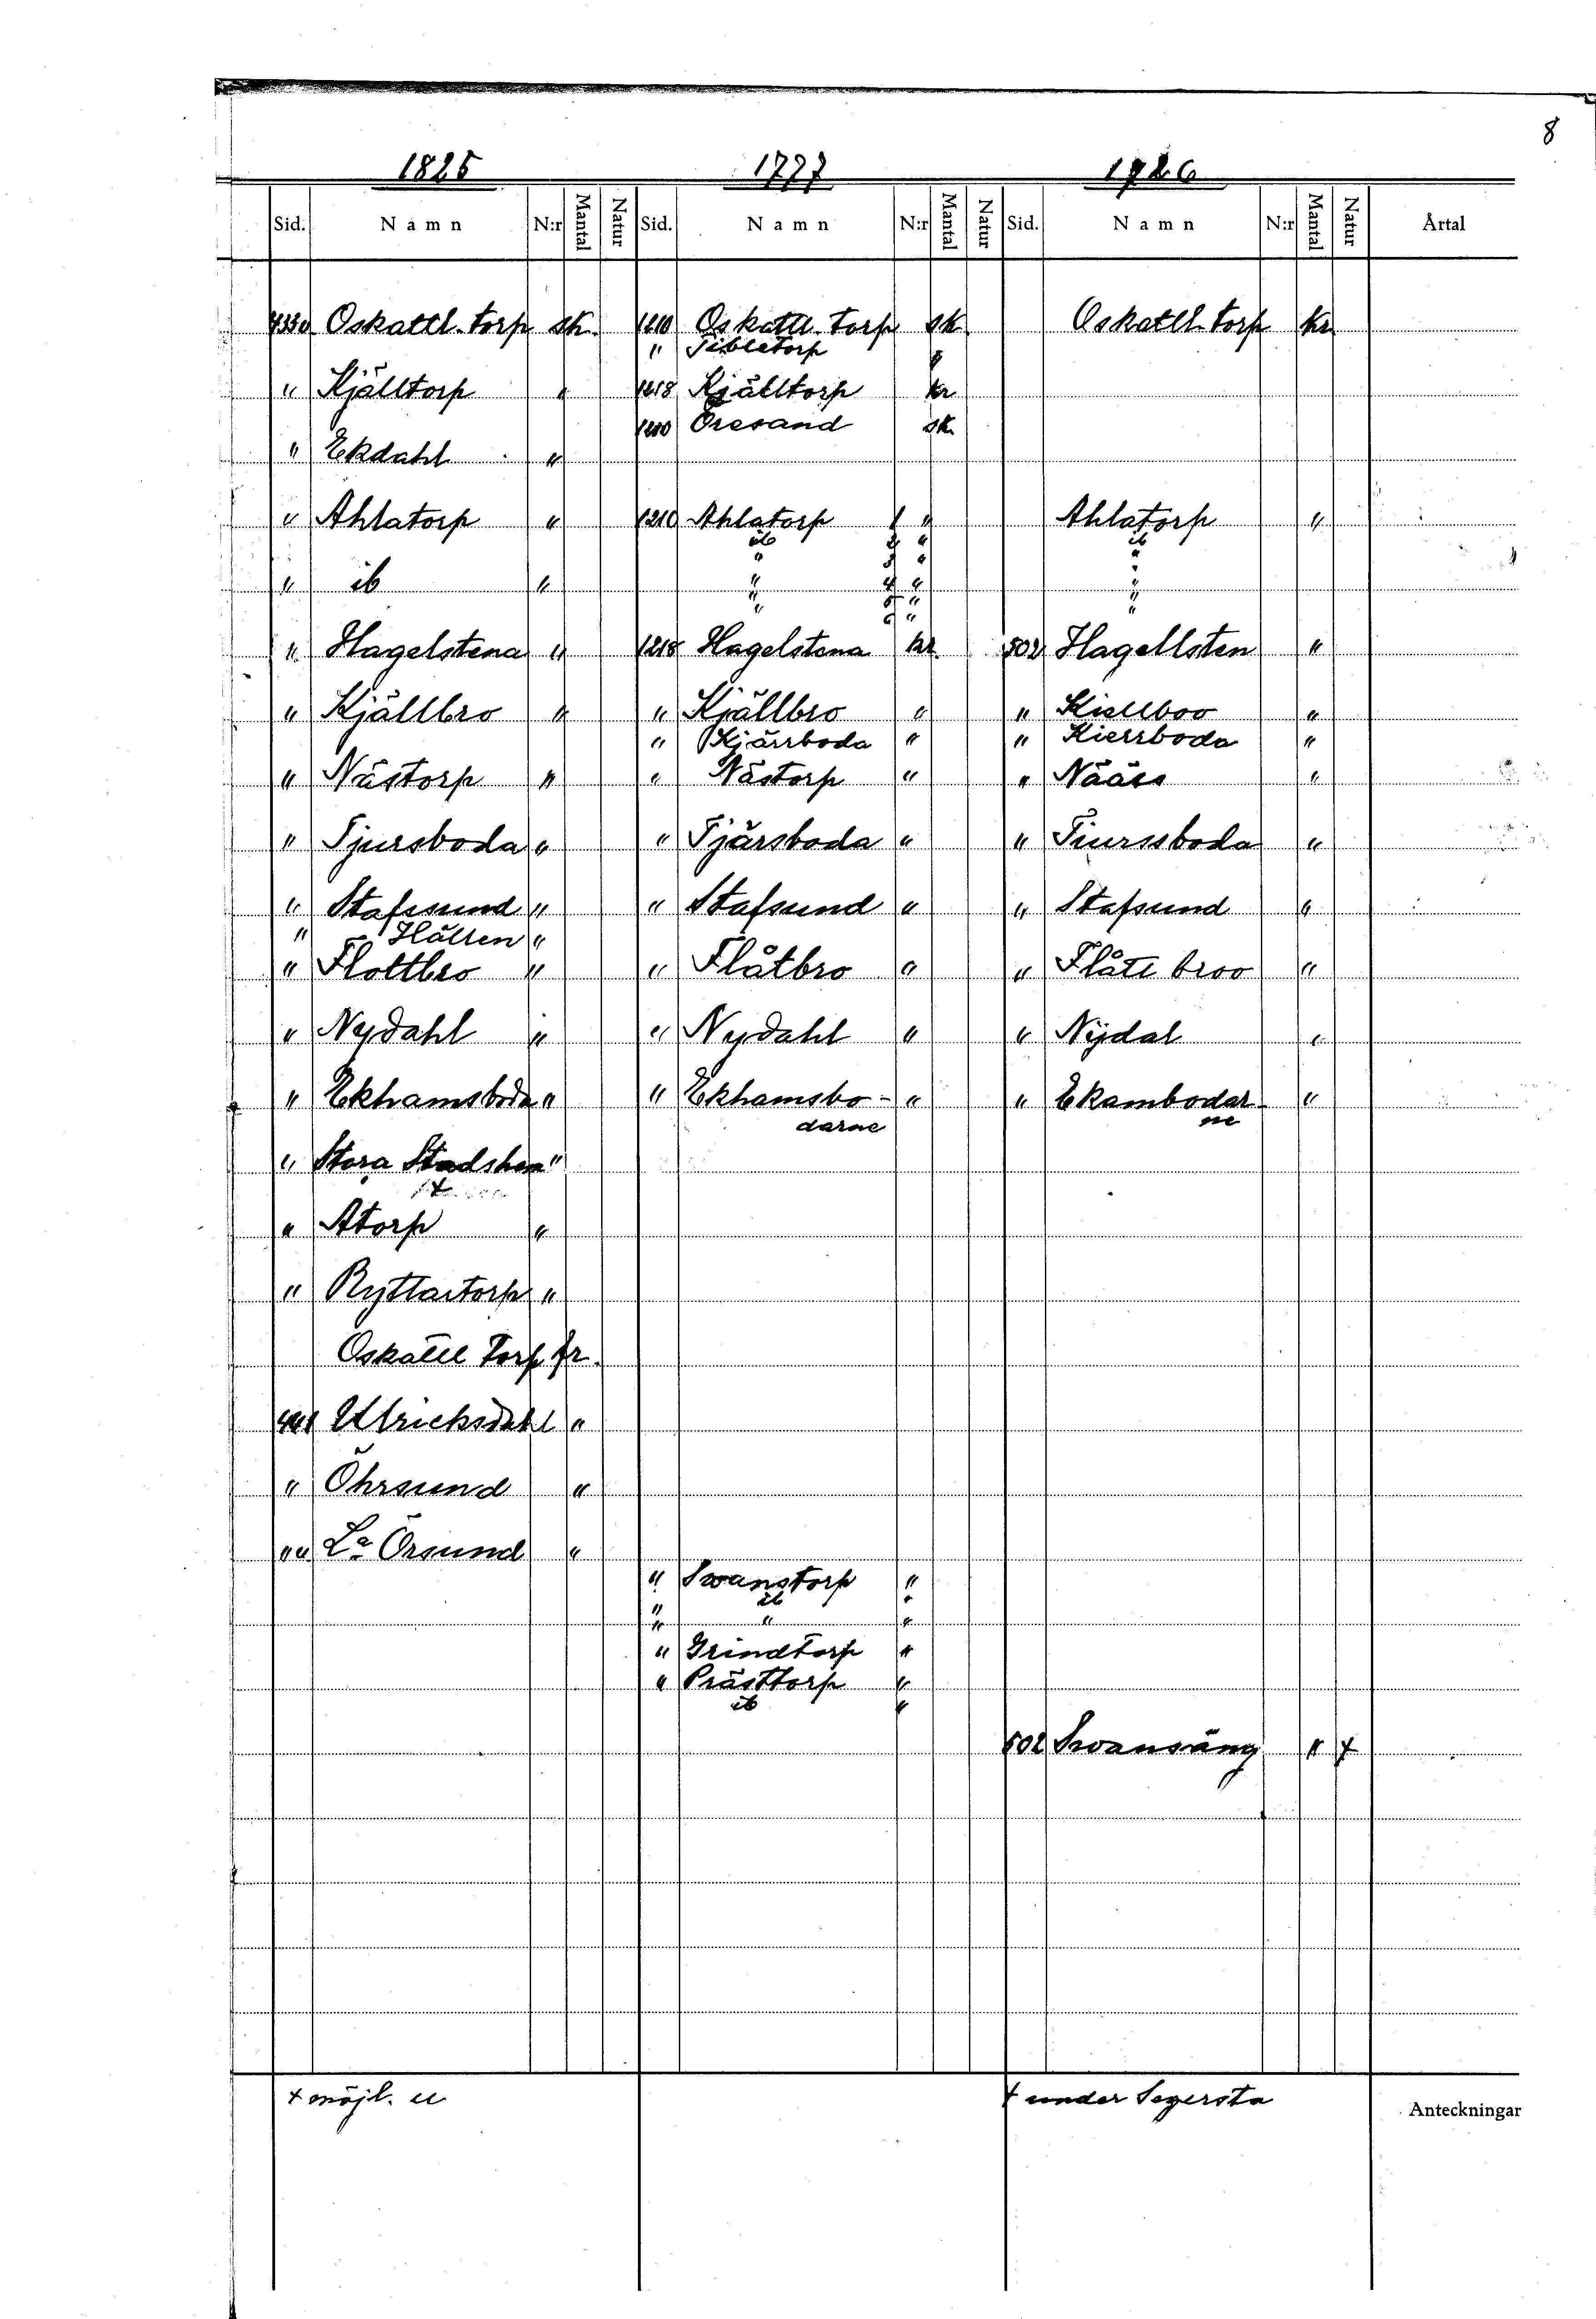 8
1825 1777 1726
Sid. Namn N:r Mantal Natur Sid. Namn N:r Mantal Natur Sid. Namn N:r Mantal Natur Årtal
Oskattl. torp sk. 1210 Oskattl. torp sk Oskattl. torp kr
" Tibletorp "
" Kjälltorp " 1218 Kjälltorp kr
1210 Öresand sk.
" Ekdahl "
" Ahlatorp " 1210 Ahlatorp 1 " Ahlatorp "
ib 2 " ib
" 3 " "
" ib " " 4 " "
" 5 " "
6 "
" Hagelstena " 1218 Hagelstena kr. 502 Hagellsten "
" Kjällbro " " Kjällbro " " Kiellboo "
" Kjärrboda " " Kierrboda "
" Nästorp " " Nästorp " " Nääss "
" Tjursboda " " Tjärsboda " " Tiurssboda "
" Stafsund " " Stafsund " " Stafsund "
" Hällen "
" Flottbro " " Flåtbro " " Flått broo "
" Nydahl " " Nydahl " " Nÿdal "
" Ekhamsboda " " Ekhamsbo- " " Ekambodar- "
darne ne
" Stora Stadshem "
" Atorp "
" Ryttartorp "
Oskattl Torp fr.
441 Ulricksdahl "
" Öhrsund "
" La Örsund "
" Swanstorp "
" ib "
" " "
" Grindtorp "
" Prästtorp "
ib "
502 Swansäng " +
+ möjl. u + under Segersta Anteckningar